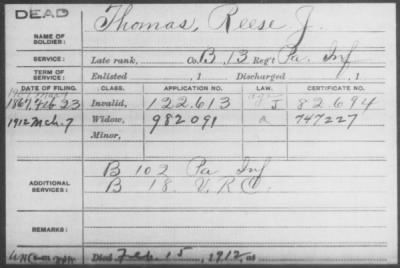 DEAD
Thomas, Reese J.
NAME OF SOLDIER:
SERVICE: Late rank, Co. B, 13 Reg't Pa. Inf
TERM OF SERVICE: Enlisted , 1 Discharged , 1
DATE OF FILING. CLASS. APPLICATION NO. LAW. CERTIFICATE NO.
1867, Feb 23 Invalid, 122.613 J 82694
1912 Mch. 7 Widow, 982091 a 747227
Minor,
B 102 Pa Inf
ADDITIONAL SERVICES: B 18. V.R.C.
REMARKS:
Died Feb. 15, 1912, at